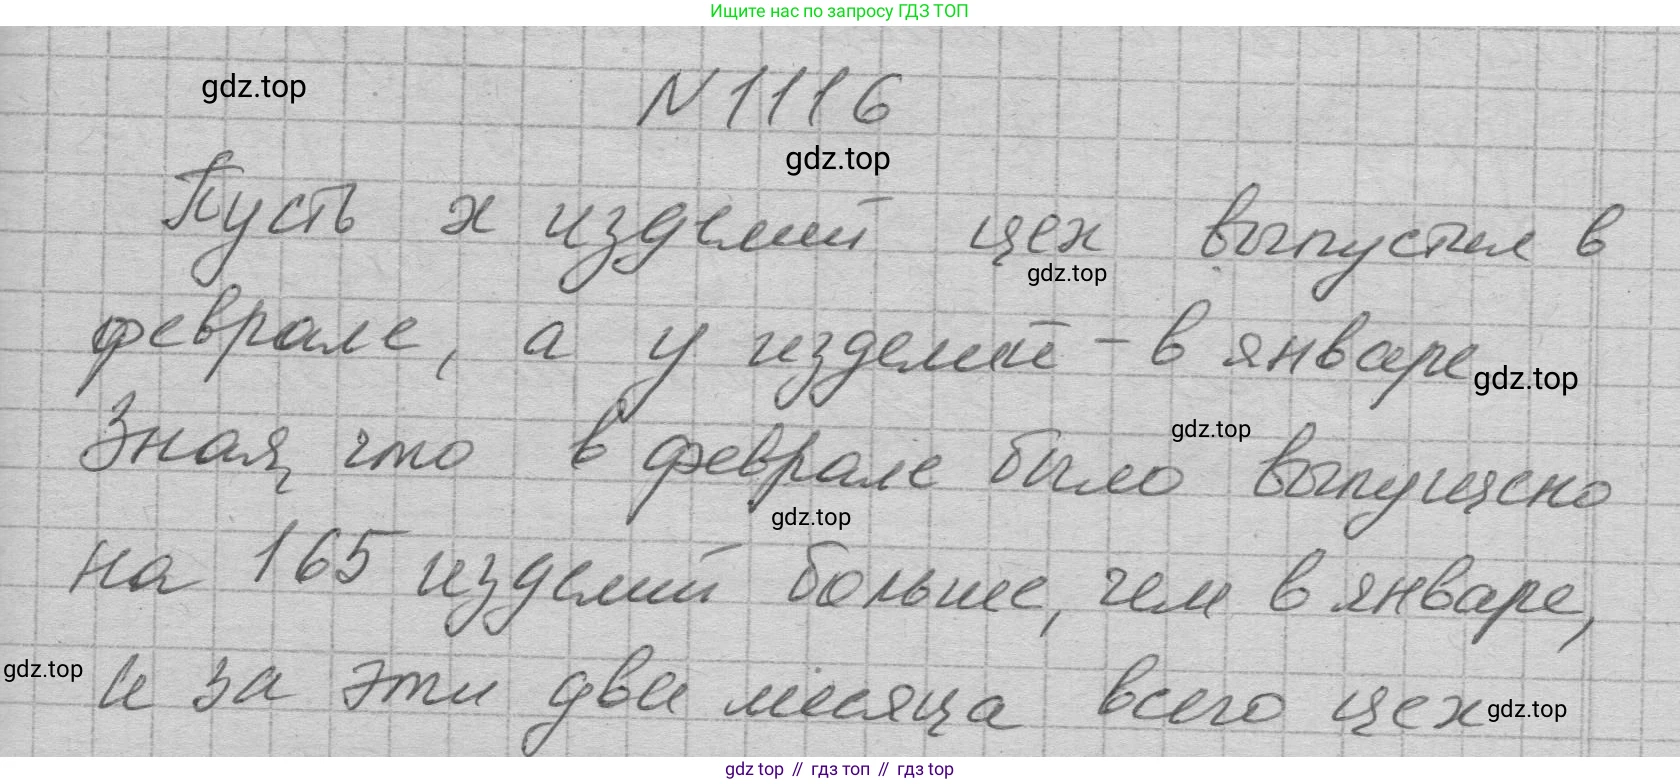 Ищите нас по запросу ГДЗ ТОП
gdz.top
N 1116
gdz.top
Пусть х изделий цех выпустил в
gdz.top
феврале, а у изделий - в январе
gdz.top
gdz.top
Зная, что в феврале было выпущено
gdz.top
на 165 изделий больше, чем в январе,
gdz.top
и за эти два месяца всего цех
gdz.top
gdz top // гдз топ // гдз top